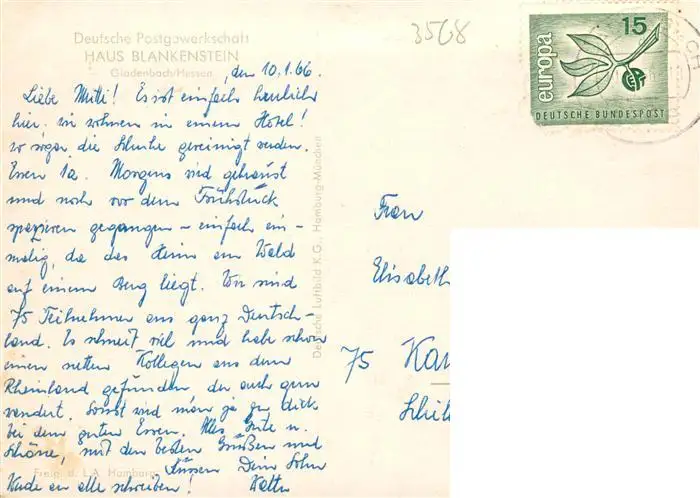 Deutsche Postgewerkschaft
HAUS BLANKENSTEIN
Gladenbach/Hessen
3568
europa
15
DEUTSCHE BUNDESPOST
, den 10.1.66.
Liebe Mutti! Es ist einfach herrlich
hier. wir wohnen in einem Hotel!
wo sogar die Schuhe gereinigt werden.
Essen 1a. Morgens wird
und noch vor dem Frühstück
spazieren gegangen – einfach ein-
malig, da das Heim am Wald
auf einem Berg liegt. Wir sind
75 Teilnehmer aus ganz Deutsch-
land. Es schneit viel und habe schon
einen netten Kollegen aus dem
Rheinland gefunden der auch gern
wandert. Sonst wird man ja zu dick
bei dem guten Essen. Alles Gute u.
Schöne, mit den besten Grüßen und
Küssen Dein Sohn
Walter
an alle schreiben!
Freig. d. L.A. Hamburg
Deutsche Luftbild K.G., Hamburg-München
Frau
Elisabeth
75 Kar
Schil